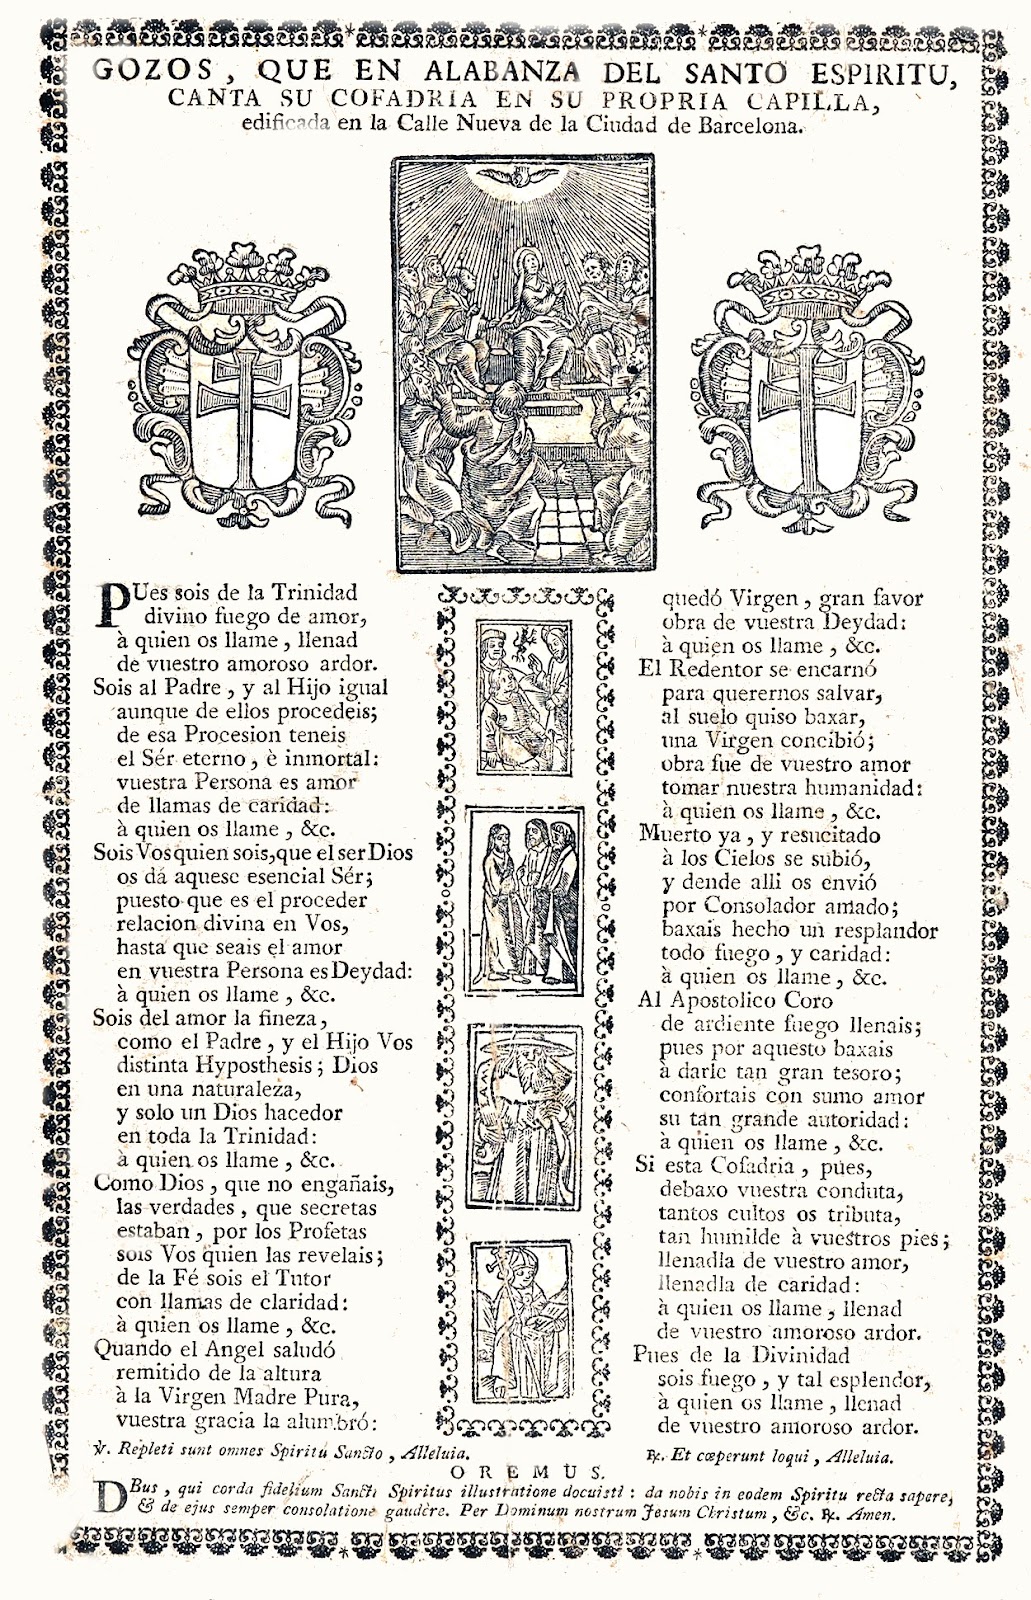 GOZOS, QUE EN ALABANZA DEL SANTO ESPIRITU,
CANTA SU COFADRIA EN SU PROPRIA CAPILLA,
edificada en la Calle Nueva de la Ciudad de Barcelona.
PUes sois de la Trinidad
divino fuego de amor,
à quien os llame, llenad
de vuestro amoroso ardor.
Sois al Padre, y al Hijo igual
aunque de ellos procedeis;
de esa Procesion teneis
el Sér eterno, è inmortal:
vuestra Persona es amor
de llamas de caridad:
à quien os llame, &c.
Sois Vos quien sois, que el ser Dios
os dá aquese esencial Sér;
puesto que es el proceder
relacion divina en Vos,
hasta que seais el amor
en vuestra Persona es Deydad:
à quien os llame, &c.
Sois del amor la fineza,
como el Padre, y el Hijo Vos
distinta Hyposthesis; Dios
en una naturaleza,
y solo un Dios hacedor
en toda la Trinidad:
à quien os llame, &c.
Como Dios, que no engañais,
las verdades, que secretas
estaban, por los Profetas
sois Vos quien las revelais;
de la Fé sois el Tutor
con llamas de claridad:
à quien os llame, &c.
Quando el Angel saludó
remitido de la altura
à la Virgen Madre Pura,
vuestra gracia la alumbró:
quedó Virgen, gran favor
obra de vuestra Deydad:
à quien os llame, &c.
El Redentor se encarnó
para querernos salvar,
al suelo quiso baxar,
una Virgen concibió;
obra fue de vuestro amor
tomar nuestra humanidad:
à quien os llame, &c.
Muerto ya, y resucitado
à los Cielos se subió,
y dende alli os envió
por Consolador amado;
baxais hecho un resplandor
todo fuego, y caridad:
à quien os llame, &c.
Al Apostolico Coro
de ardiente fuego llenais;
pues por aquesto baxais
à darle tan gran tesoro;
confortais con sumo amor
su tan grande autoridad:
à quien os llame, &c.
Si esta Cofadria, pues,
debaxo vuestra conduta,
tantos cultos os tributa,
tan humilde à vuestros pies;
llenadla de vuestro amor,
llenadla de caridad:
à quien os llame, llenad
de vuestro amoroso ardor.
Pues de la Divinidad
sois fuego, y tal esplendor,
à quien os llame, llenad
de vuestro amoroso ardor.
℣. Repleti sunt omnes Spiritú Sancto, Alleluia.
℟. Et cœperunt loqui, Alleluia.
OREMUS.
DEus, qui corda fidelium Sancti Spiritus illustratione docuisti: da nobis in eodem Spiritu recta sapere,
& de ejus semper consolatione gaudère. Per Dominum nostrum Jesum Christum, &c. ℟. Amen.